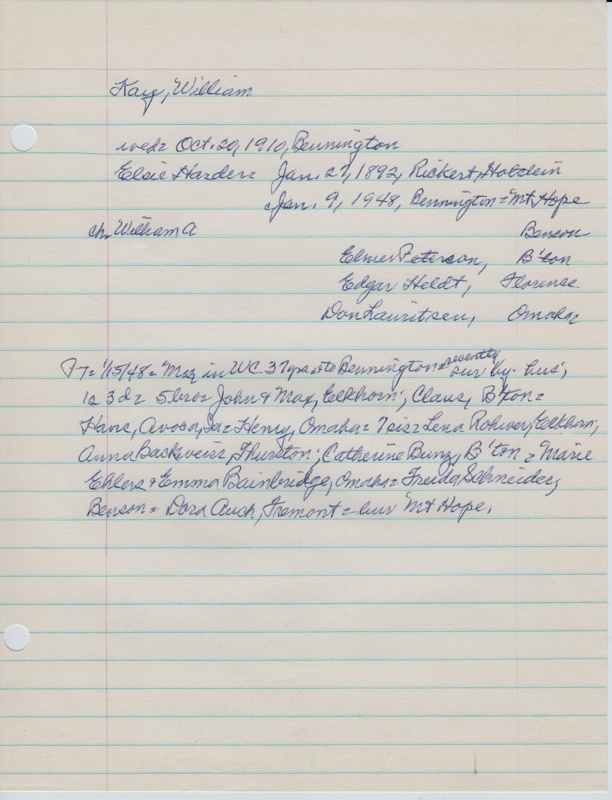 Kay, William
wed: Oct. 20, 1910, Bennington
Elsie Harder: Jan. 27, 1892, Rickert, Holstein
Jan. 9, 1948, Bennington = Mt Hope
ch. William A Benson
Elmer Peterson, B'ton
Edgar Heldt, Florence
Don Lauritsen, Omaha
1/15/48 = in WC 37 yrs Bennington recently
sur by: hus',
1s 3d = 5 bros = John & Max, Elkhorn; Claus, B'ton =
Hans, Avoca, Ia = Henry, Omaha = 7 sis = Lena Rohwer, Elkhorn,
Anna Backweiss, Thurston; Catherine Bunz, B'ton = Marie
Ehlers & Emma Bainbridge, Omaha = Freida Schneider,
Benson = Dora Auch, Fremont = bur Mt Hope.